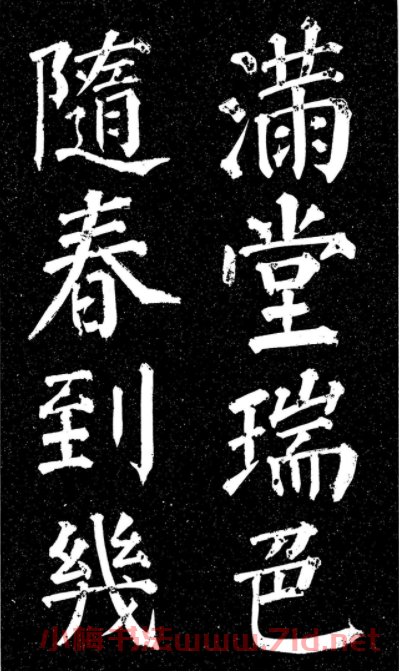 满堂瑞色
隨春到幾
小楷书法www.71d.net